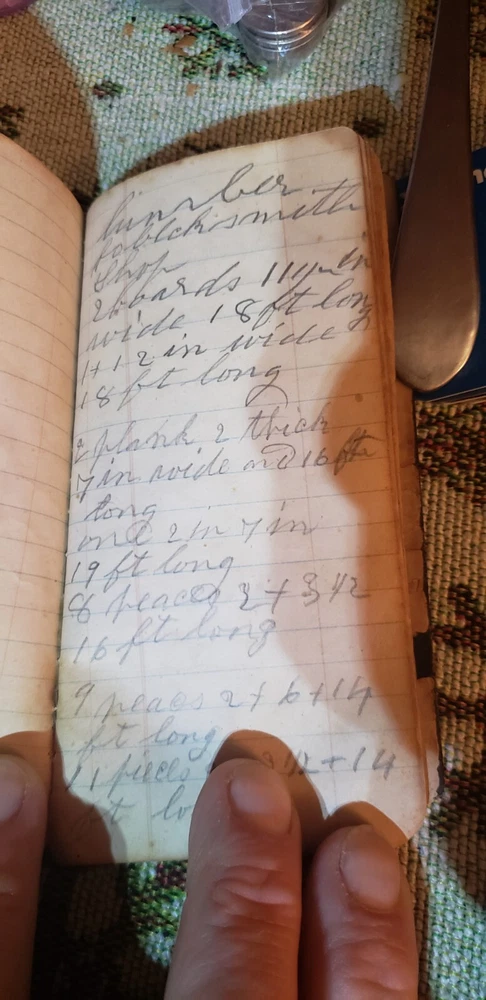 lumber
Shop
2 boards 11 1/2 in
wide 18 ft long
1+12 in wide
18 ft long
2 plank 2 thick
7 in wide and 16 ft
long
and 2 in 7 in
19 ft long
8 peaces 2+3 1/2
16 ft long
9 peaces 2+6+14
ft long
11 pieces 1/2+14
ft